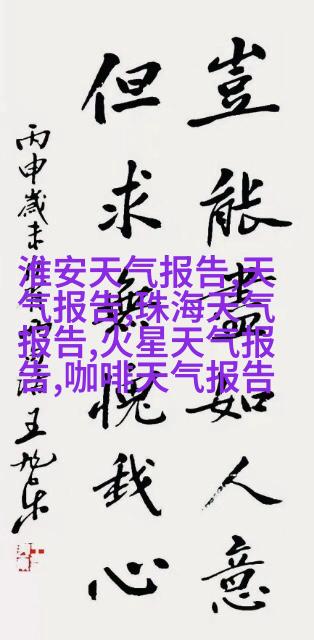 豈能盡如人意
但求無愧我心
丙申歲末王旭东
淮安天气报告,天
气报告,珠海天气
报告,火星天气报
告,咖啡天气报告